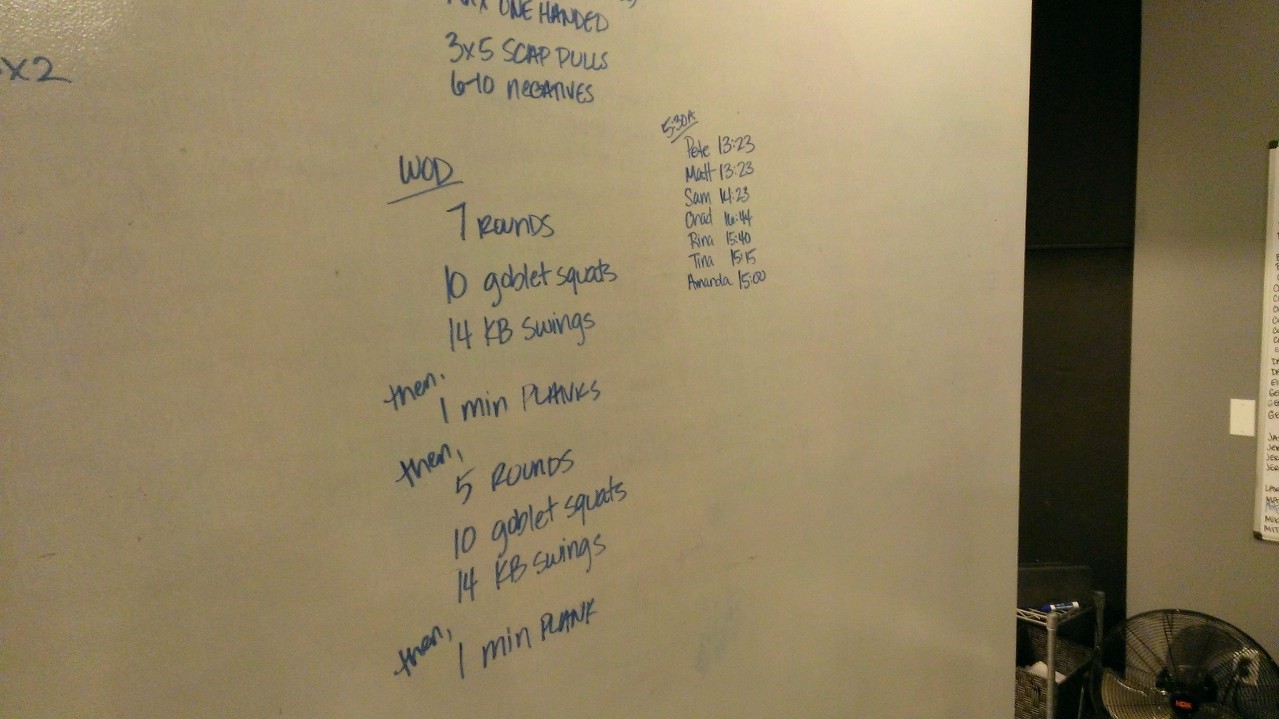 ONE HANDED
3x5 SCAP PULLS
6-10 NEGATIVES
x2
WOD
7 ROUNDS
10 goblet squats
14 KB swings
then,
1 min PLANKS
then,
5 ROUNDS
10 goblet squats
14 KB swings
then,
1 min PLANK
5:30A
Pete 13:23
Matt 13:23
Sam 14:23
Chad 16:44
Rina 15:40
Tina 15:15
Amanda 15:00